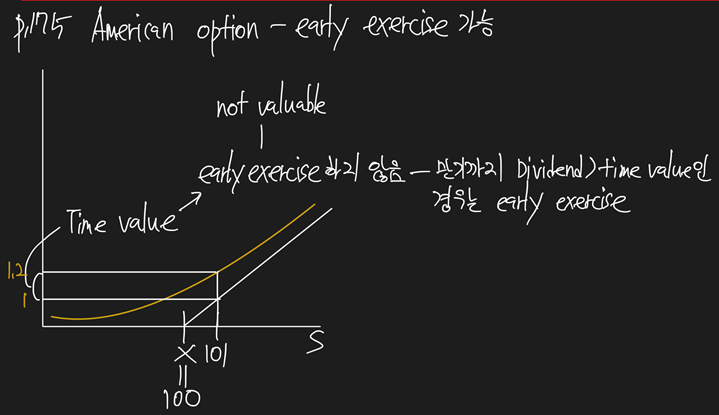 p.175 American option - early exercise 가능
not valuable
early exercise 하지 않음 - 만기까지 Dividend > time value인
경우는 early exercise
Time value
1.2
1
X 101 S
||
100